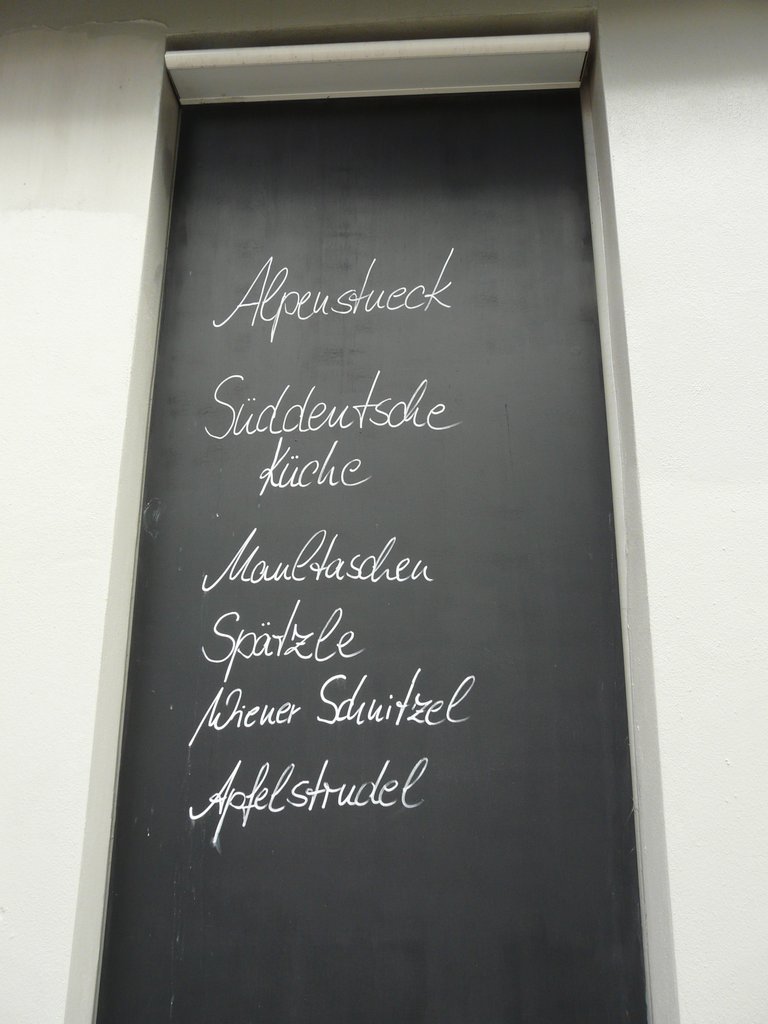 Alpenstueck
Süddeutsche
Küche
Maultaschen
Spätzle
Wiener Schnitzel
Apfelstrudel